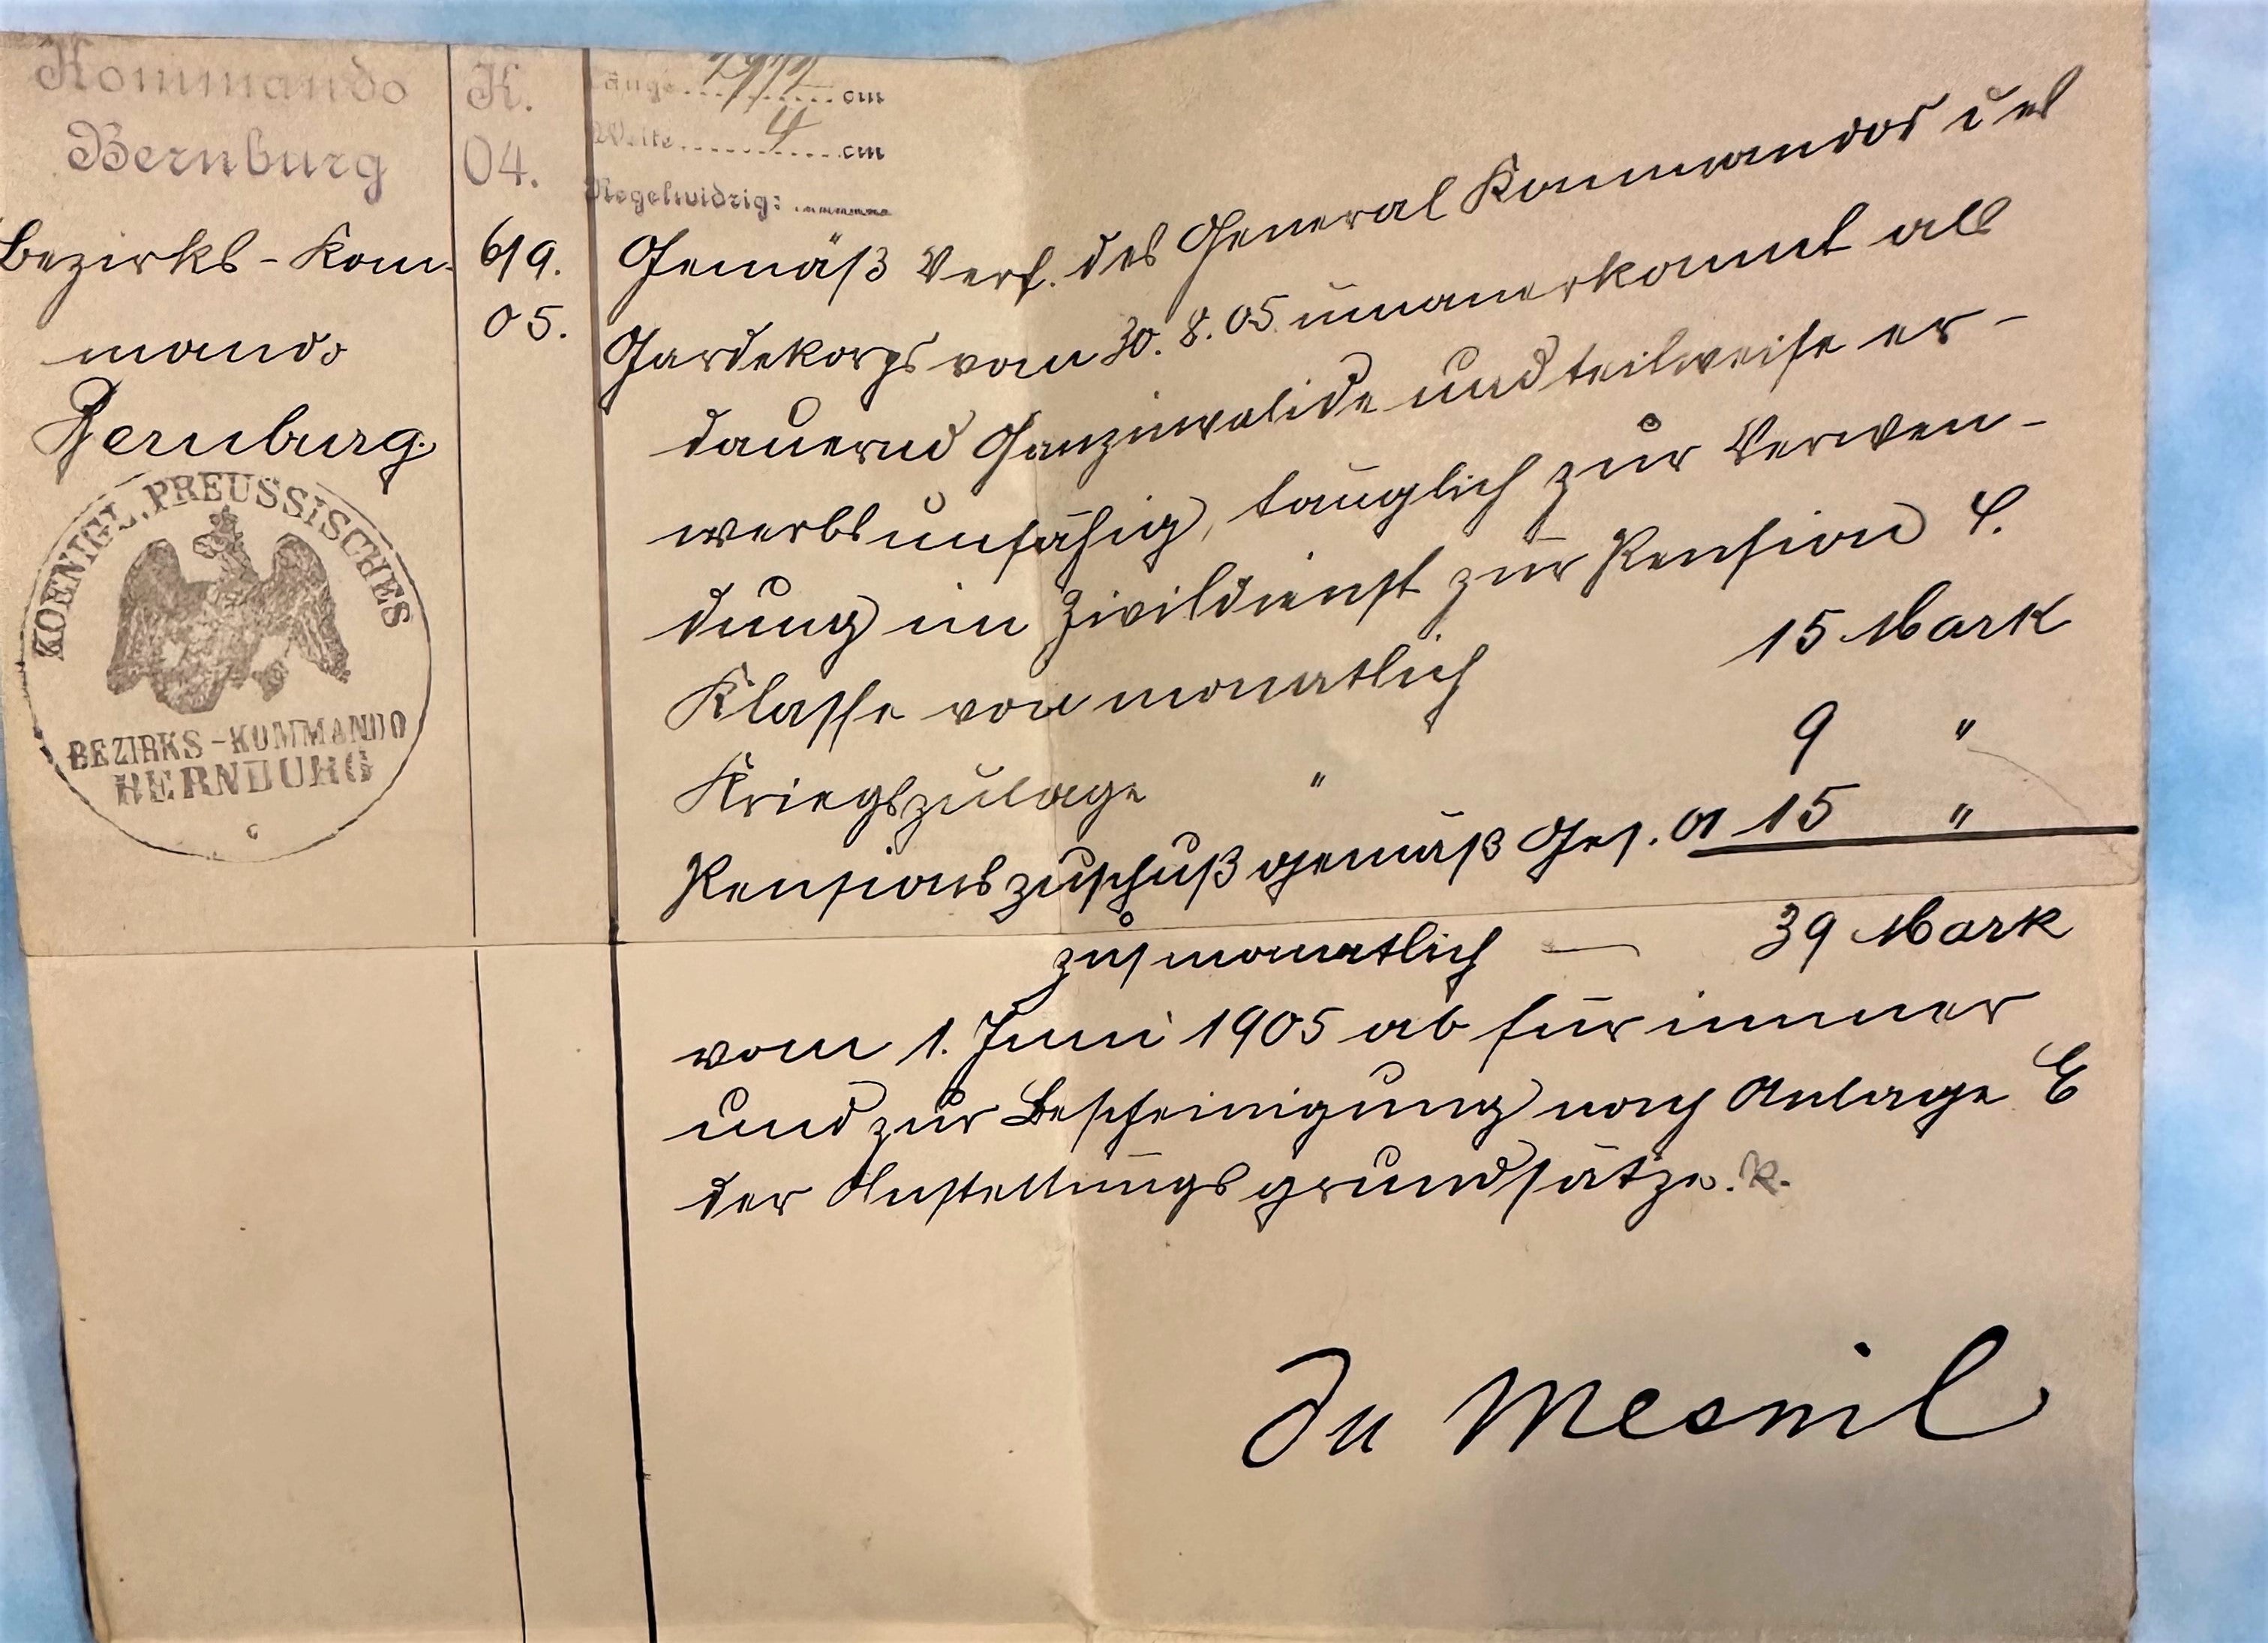 Kommando
Bernburg
K.
04.
Länge ........ cm
Weite 4 cm
Regelwidrig:
Bezirks-Kom-
mando
Bernburg.
6/9.
05.
KOENIGL. PREUSSISCHES
BEZIRKS-KOMMANDO
BERNBURG
Gemäß Verf. des General Kommandos des
Gardekorps vom 30. 8. 05 anerkannt als
dauernd Ganzinvalide und teilweise er-
werbsunfähig, tauglich zur Verwen-
dung im Zivildienst zur Pension 4.
Klasse von monatlich 15 Mark
Kriegszulage " 9 "
Pensionszuschuß gemäß Ges. 01 15 "
zus monatlich — 39 Mark
vom 1. Juni 1905 ab für immer
und zur Bescheinigung nach Anlage E
der Anstellungsgrundsätze.
Du Mesnil